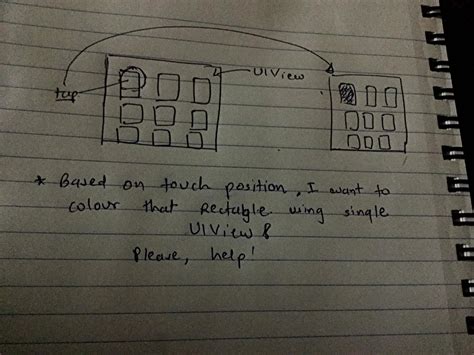 UIView
tap
* Based on touch position, I want to
colour that Rectable using single
UIView &
Please, help!